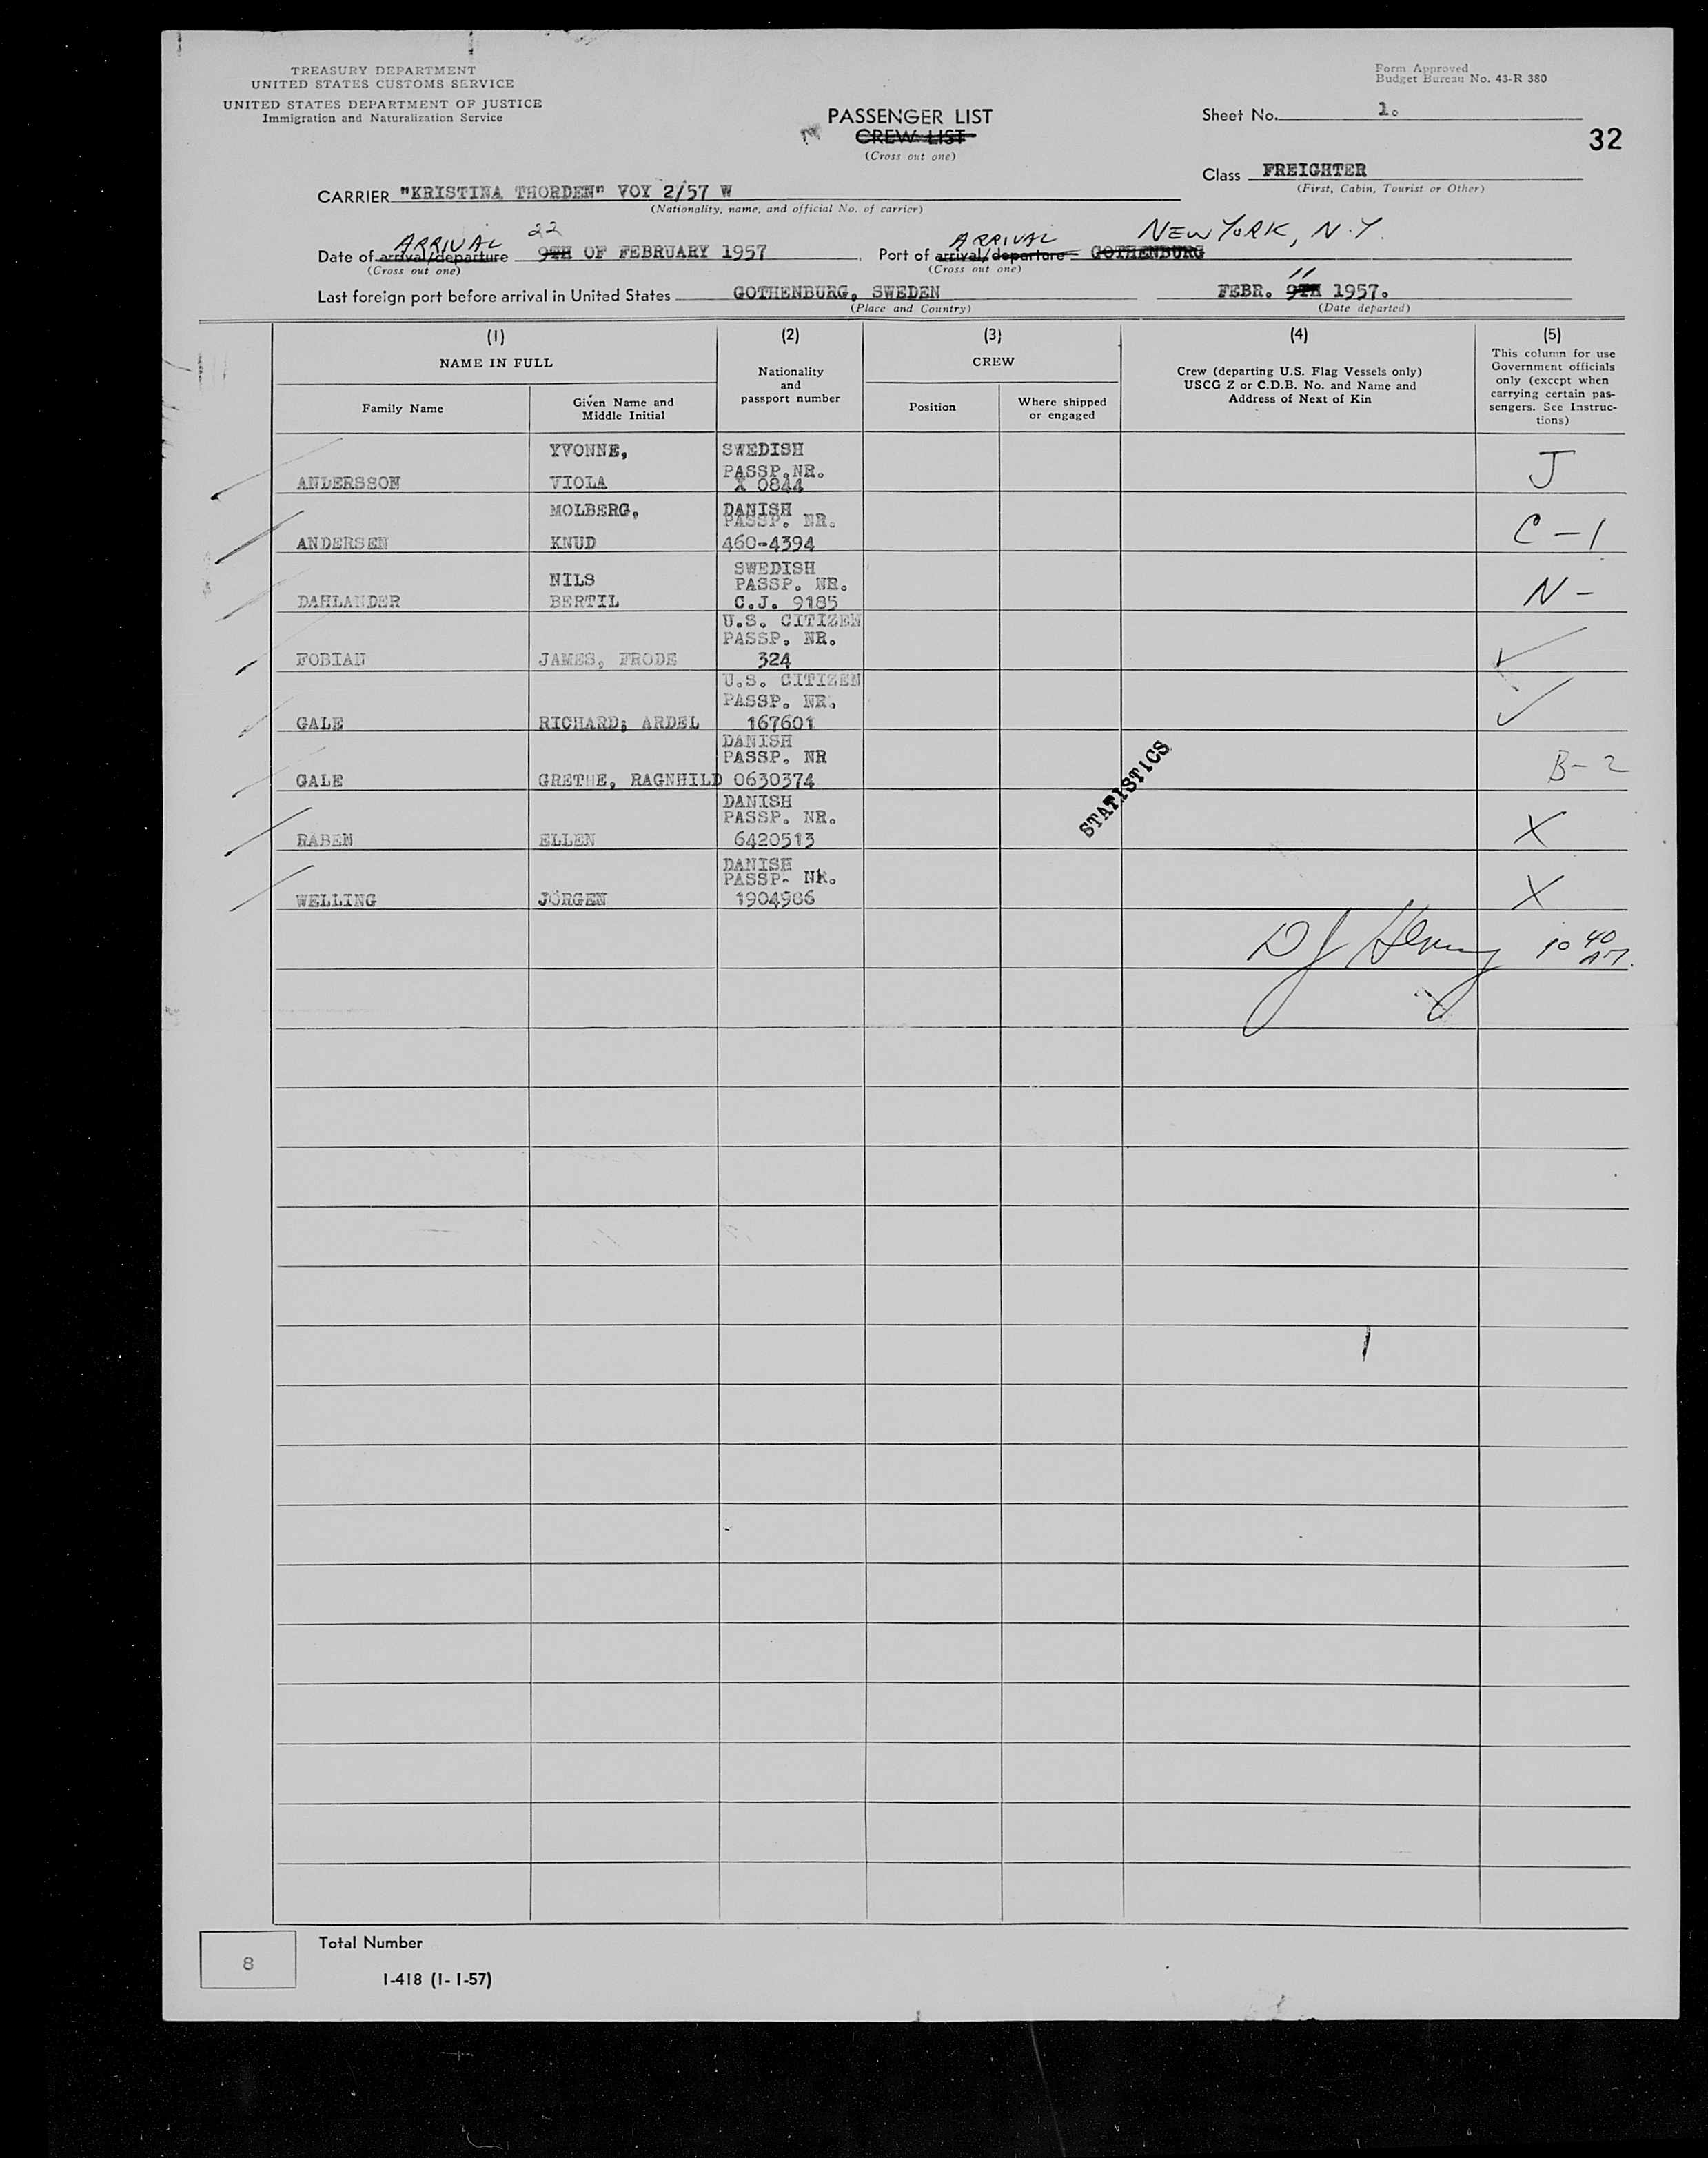 TREASURY DEPARTMENT
UNITED STATES CUSTOMS SERVICE
UNITED STATES DEPARTMENT OF JUSTICE
Immigration and Naturalization Service
Form Approved
Budget Bureau No. 43-R 380
PASSENGER LIST
CREW LIST
(Cross out one)
Sheet No. 1.
32
Class FREIGHTER
(First, Cabin, Tourist or Other)
CARRIER "KRISTINA THORDEN" VOY 2/57 W
(Nationality, name, and official No. of carrier)
ARRIVAL 22 ARRIVAL NEW YORK, N.Y.
Date of arrival/departure 9TH OF FEBRUARY 1957 Port of arrival/departure GOTHENBURG
(Cross out one) (Cross out one)
11
Last foreign port before arrival in United States GOTHENBURG, SWEDEN FEBR. 9TH 1957.
(Place and Country) (Date departed)
(1) (2) (3) (4) (5)
NAME IN FULL
Family Name
Given Name and
Middle Initial
Nationality
and
passport number
CREW
Position
Where shipped
or engaged
Crew (departing U.S. Flag Vessels only)
USCG Z or C.D.B. No. and Name and
Address of Next of Kin
This column for use
Government officials
only (except when
carrying certain pas-
sengers. See Instruc-
tions)
YVONNE, SWEDISH
PASSP.NR.
ANDERSSON VIOLA X 0844 J
MOLBERG, DANISH
PASSP. NR.
ANDERSEN KNUD 460-4394 C-1
SWEDISH
NILS PASSP. NR.
DAHLANDER BERTIL C.J. 9185 N-
U.S. CITIZEN
PASSP. NR.
FOBIAN JAMES, FRODE 324
U.S. CITIZEN
PASSP. NR.
GALE RICHARD; ARDEL 167601
DANISH
PASSP. NR
GALE GRETHE, RAGNHILD 0630374 B-2
STATISTICS
DANISH
PASSP. NR.
RABEN ELLEN 6420513 X
DANISH
PASSP- NR.
WELLING JÖRGEN 1904986 X
DJ 10 40 AM.
8
Total Number
I-418 (1-1-57)